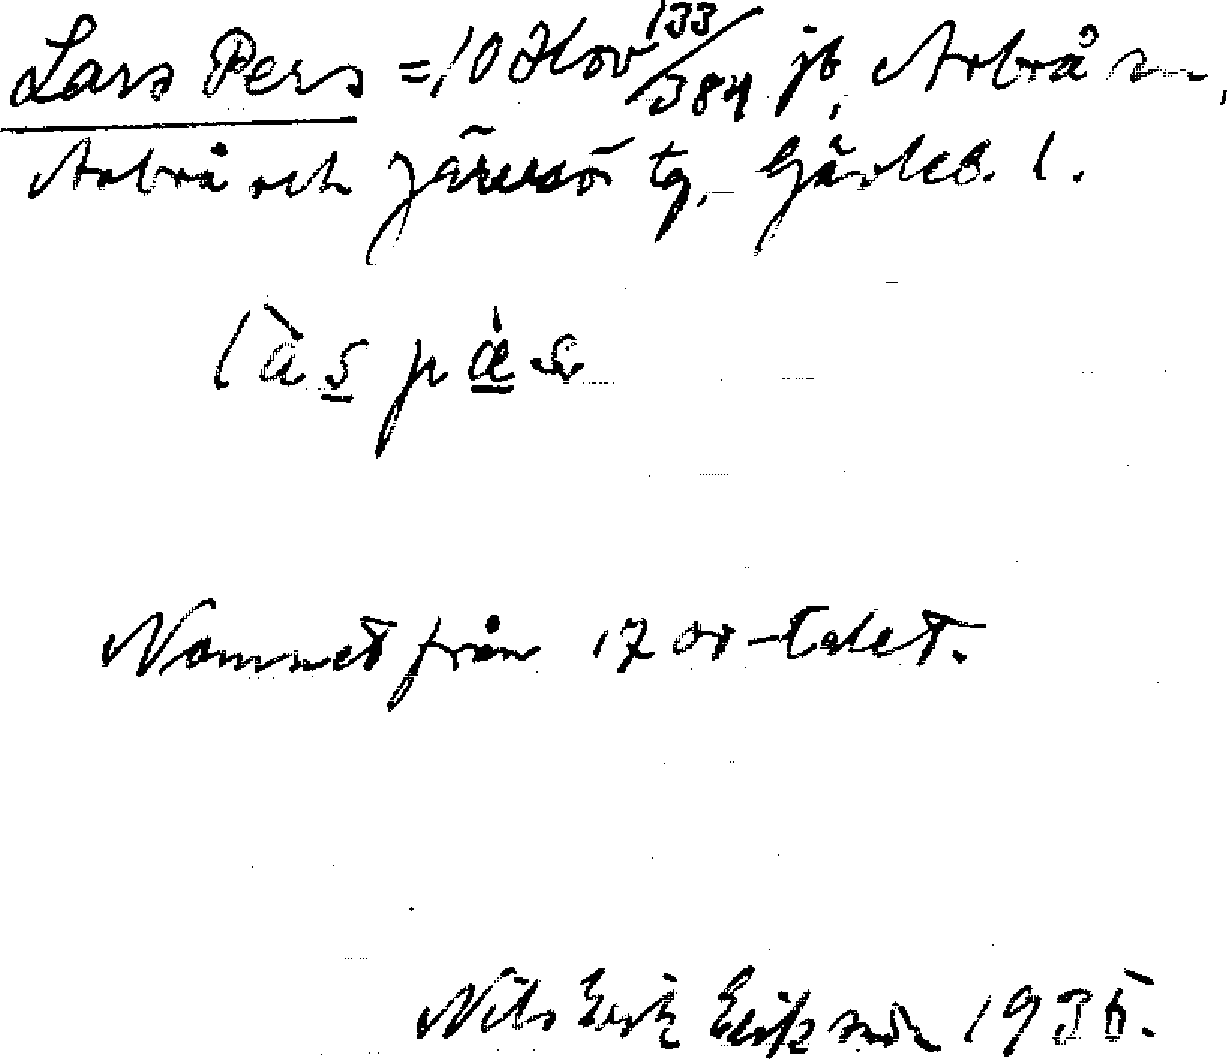 Lars Pers = 10 Hov 133/384 jb, Arbrå sn,
Arbrå och Järvsö tg, Gävleb. l.
làs pæ̀s
Namnet från 1700-talet.
Nils Erik Erikson 1935.